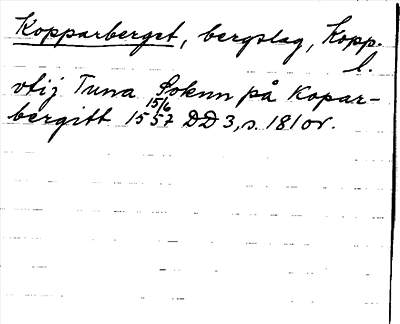 Kopparberget, bergslag, Kopp.
l.
vtij Tuna Soknn på Kopar-
bergitt 15 15/6 57 DD 3, s. 181 or.